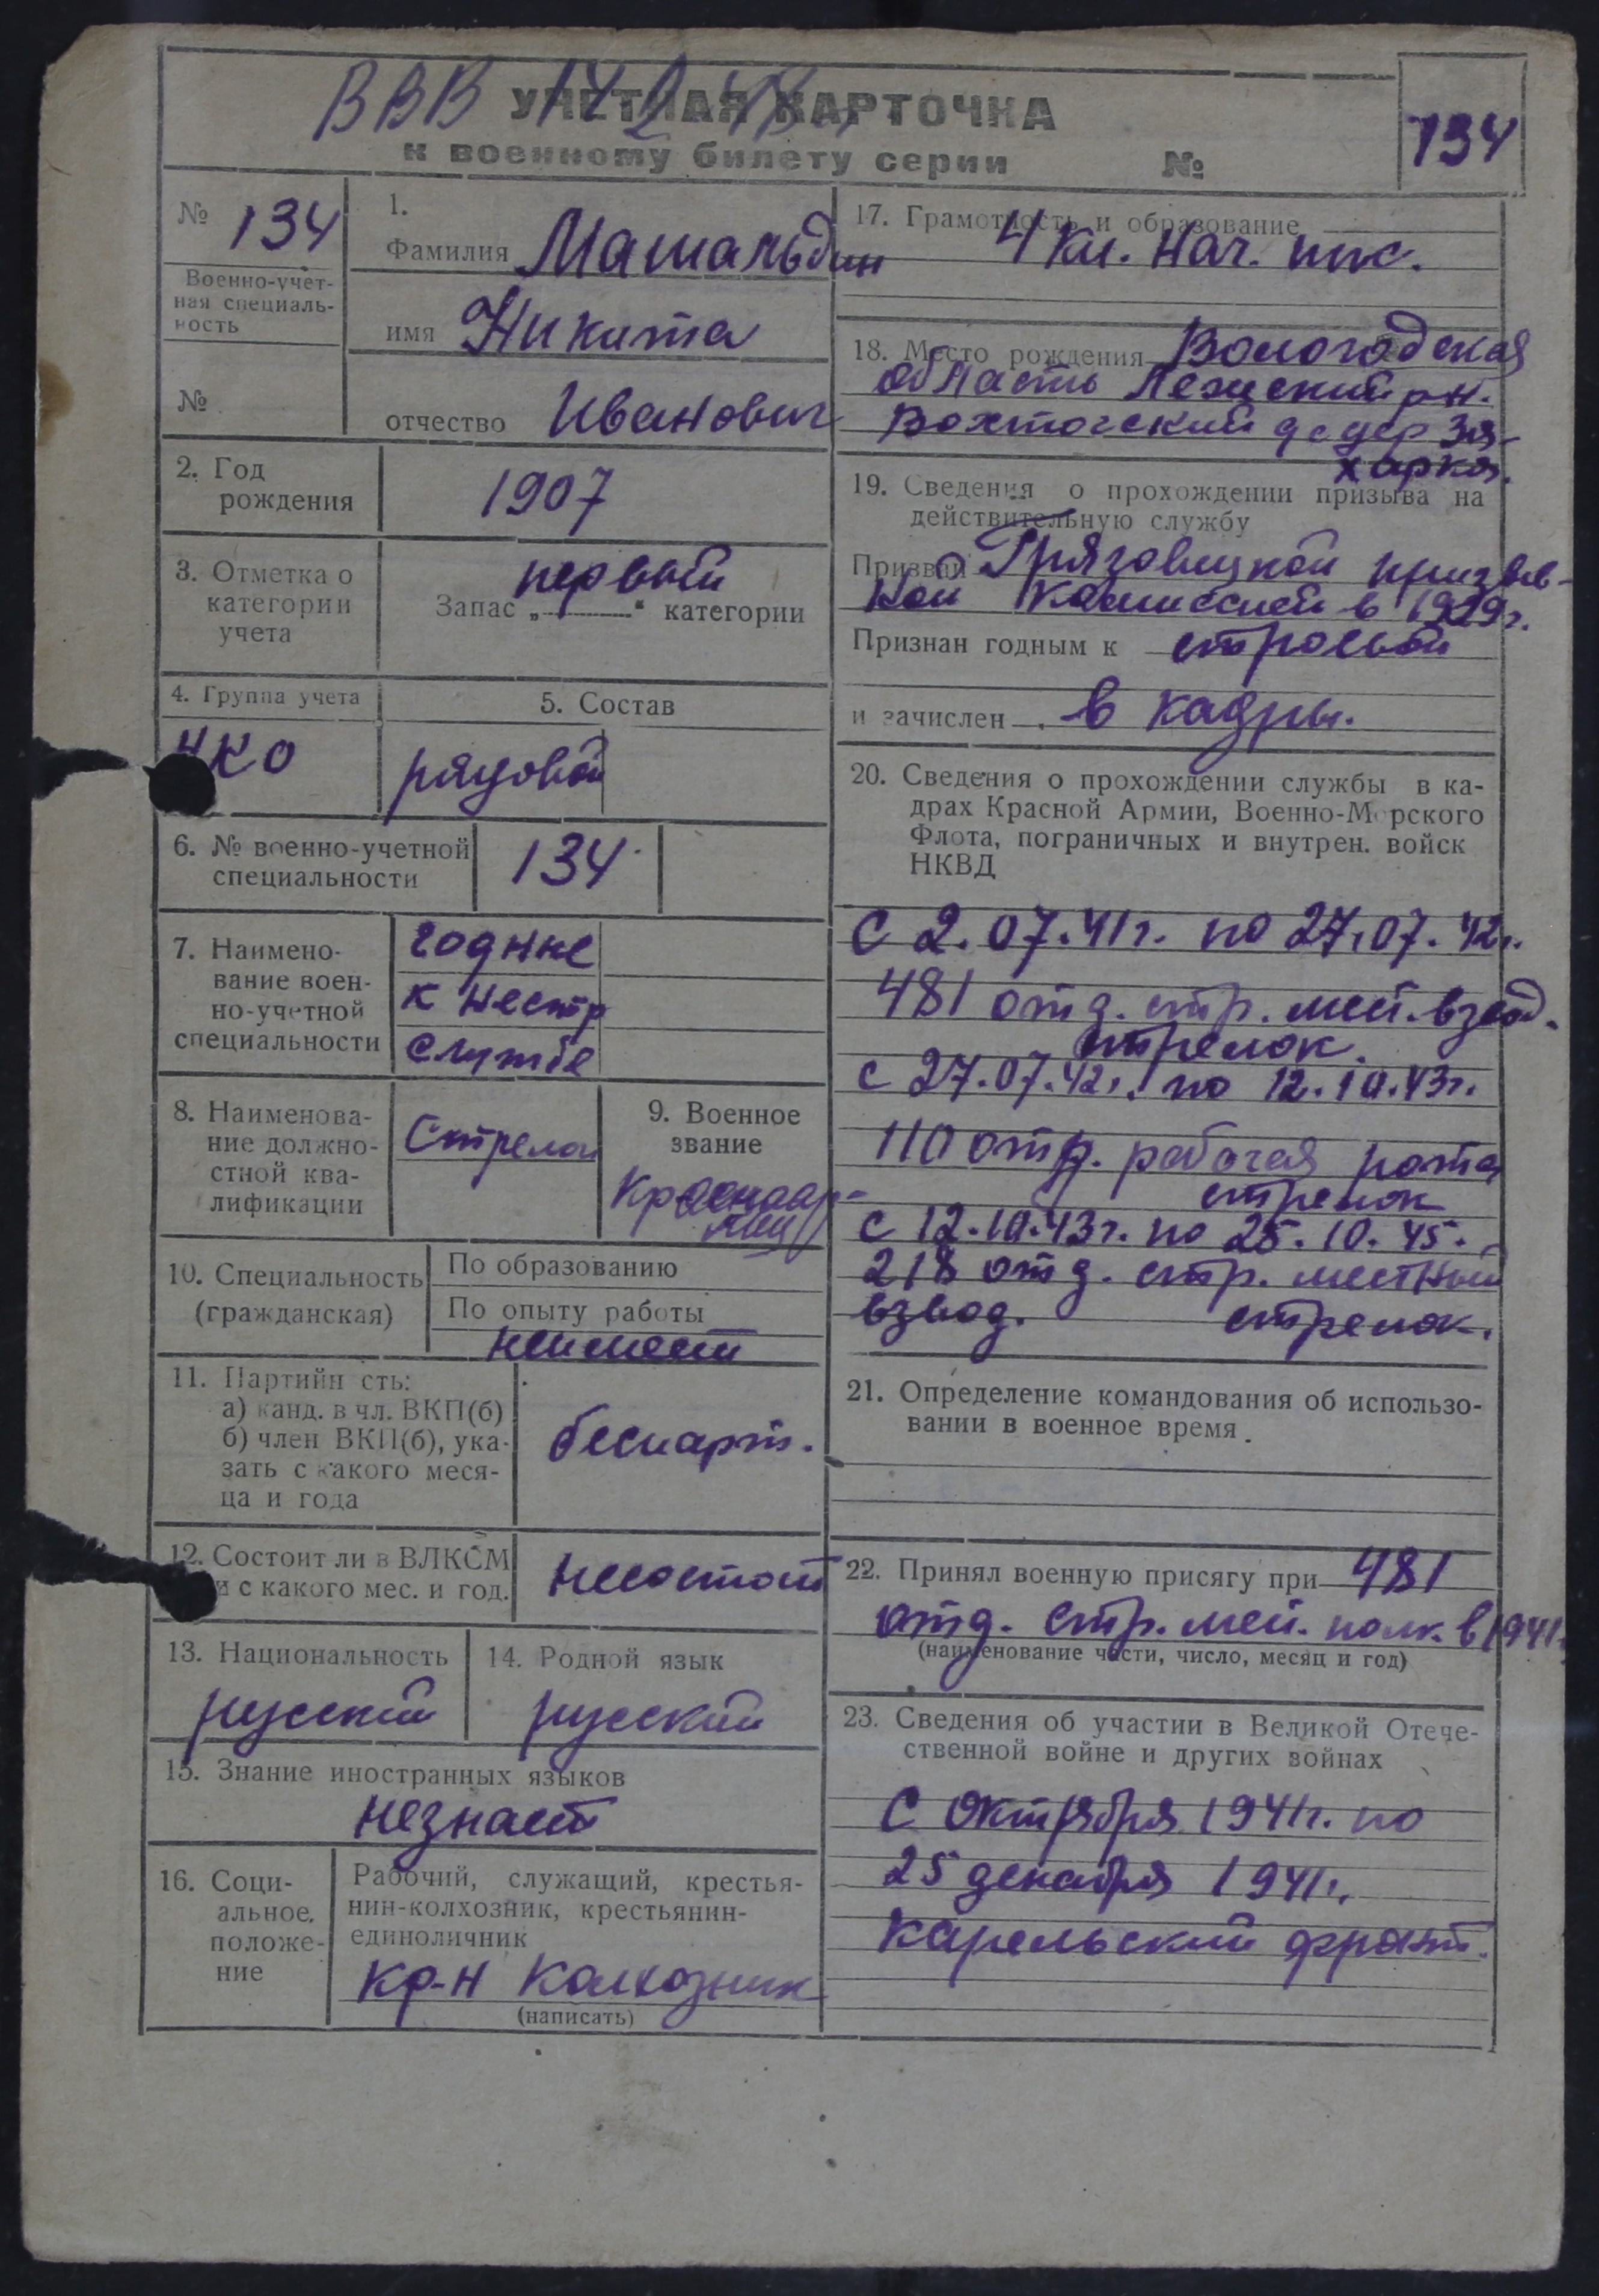 УЧЕТНАЯ КАРТОЧКА
к военному билету серии №
134
№ 134
Военно-учет-
ная специаль-
ность
№
1.
Фамилия Машальдин
имя Никита
отчество Иванович
2. Год
рождения
1907
3. Отметка о
категории
учета
первой
Запас „ “ категории
4. Группа учета
5. Состав
рядовой
6. № военно-учетной
специальности
134
7. Наимено-
вание воен-
но-учетной
специальности
годные
к нестр
службе
8. Наименова-
ние должно-
стной ква-
лификации
Стрелок
9. Военное
звание
Красноар-
меец
10. Специальность
(гражданская)
По образованию
По опыту работы
неимеет
11. Партийн сть:
а) канд. в чл. ВКП(б)
б) член ВКП(б), ука-
зать с какого меся-
ца и года
беспарт.
12. Состоит ли в ВЛКСМ
и с какого мес. и год.
несостоит
13. Национальность
русский
14. Родной язык
русский
15. Знание иностранных языков
незнает
16. Соци-
альное.
положе-
ние
Рабочий, служащий, крестья-
нин-колхозник, крестьянин-
единоличник
кр-н колхозник
(написать)
17. Грамотность и образование
4 кл. нач. шк.
18. Место рождения Вологодская
область Лежский рн.
Вохтогский
19. Сведения о прохождении призыва на
действительную службу
Призван Грязовецкой призыв-
ной комиссией в 1929г.
Признан годным к строевой
и зачислен в кадры.
20. Сведения о прохождении службы в ка-
драх Красной Армии, Военно-Морского
Флота, пограничных и внутрен. войск
НКВД
С 2.07.41г. по 27.07.42г.
481 отд. стр. мест. взвод.
стрелок.
с 27.07.42г. по 12.10.43г.
110 отд. рабочая рота
стрелок
с 12.10.43г. по 25.10.45.
218 отд. стр. местный
взвод. стрелок.
21. Определение командования об использо-
вании в военное время
22. Принял военную присягу при 481
отд. стр. мест. полк. в 1941.
(наименование части, число, месяц и год)
23. Сведения об участии в Великой Отече-
ственной войне и других войнах
С октября 1941г. по
25 декабря 1941г.
карельский фронт.